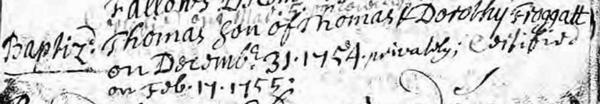 Fallows
Baptiz: Thomas son of Thomas & Dorothy Froggatt
on Decemb: 31. 1754. privately; Certified
on Feb. 17. 1755.